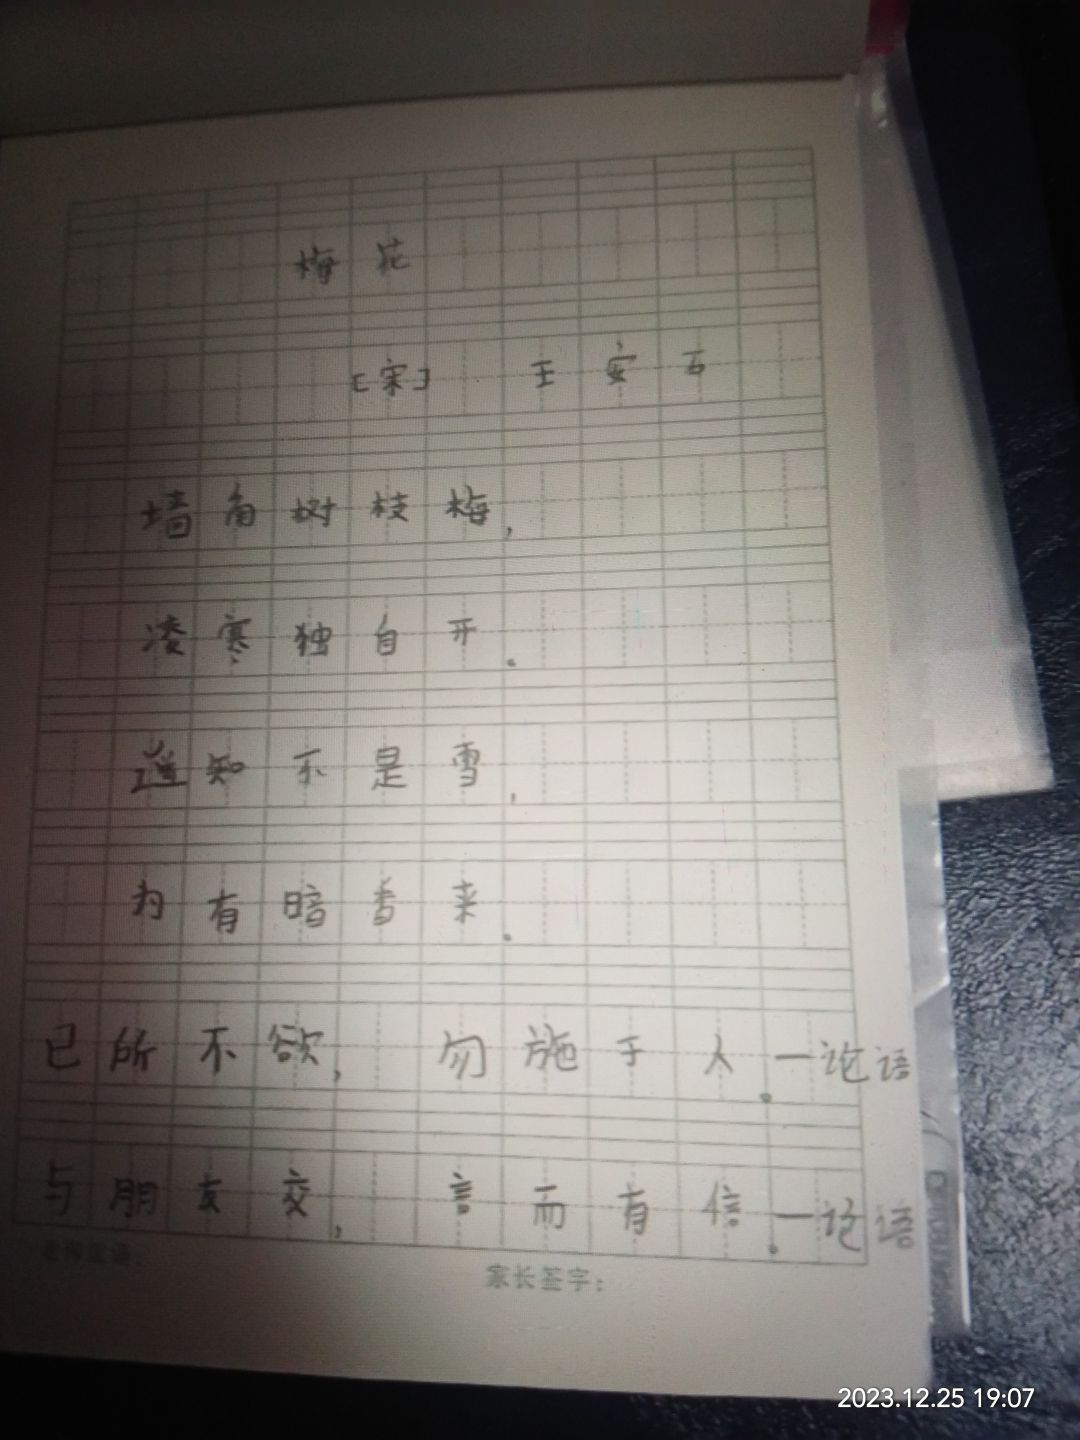 梅花
[宋] 王安石
墙角树枝梅,
凌寒独自开.
遥知不是雪,
为有暗香来.
已所不欲, 勿施于人.—论语
与朋友交, 言而有信.—论语
家长签字:
2023.12.25 19:07